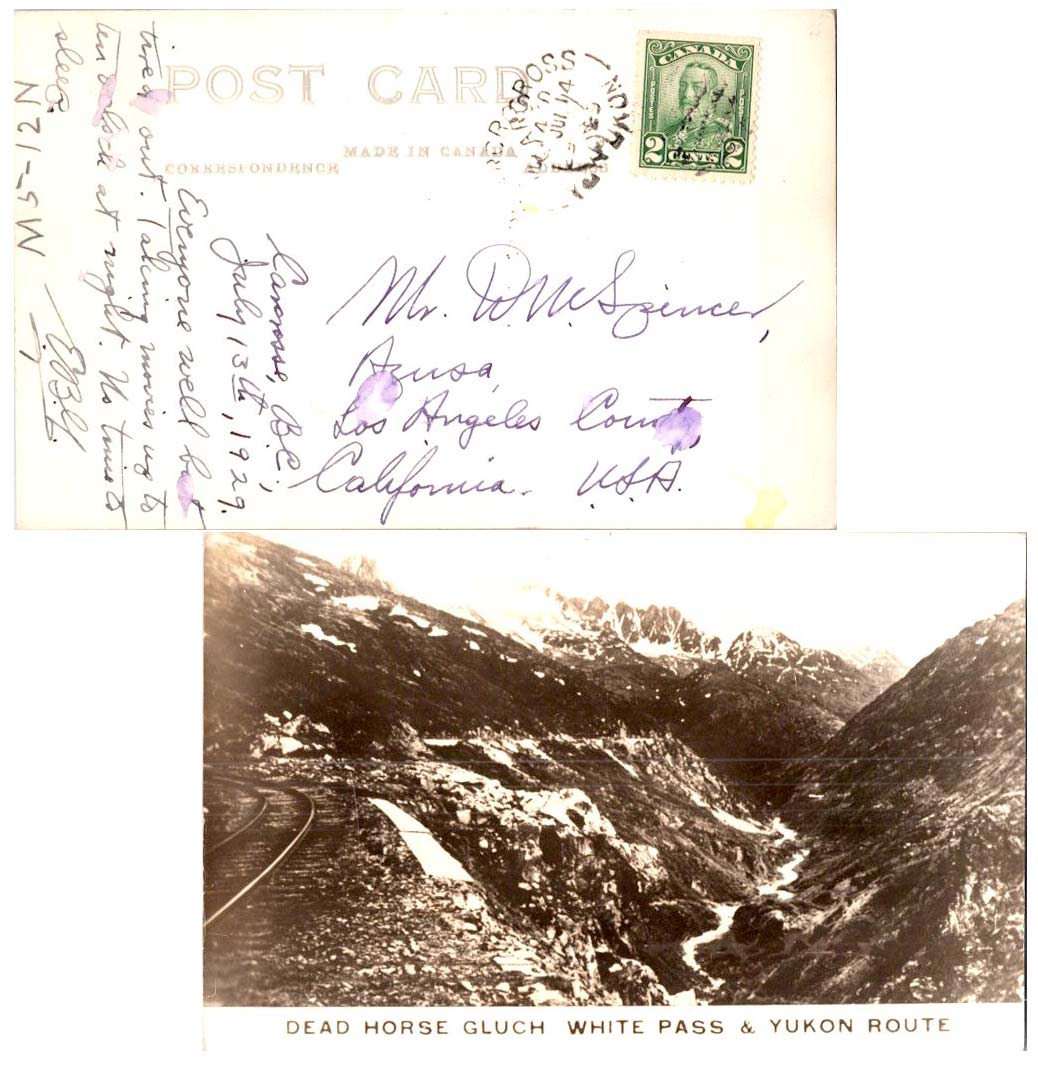 POST CARD
MADE IN CANADA
CORRESPONDENCE
ADDRESS
CARCROSS
JUL 14
29
YUKON
CANADA
POSTES POST
2 CENTS 2
Carcross, B.C.,
July 13th, 1929.
Everyone well but
tired out. Taking movies up to
ten oclock at night. No time to
sleep.
E.B.H.
M5-12N
Mr. D M Spencer,
Azusa,
Los Angeles County,
California. U.S.A.
DEAD HORSE GLUCH WHITE PASS & YUKON ROUTE